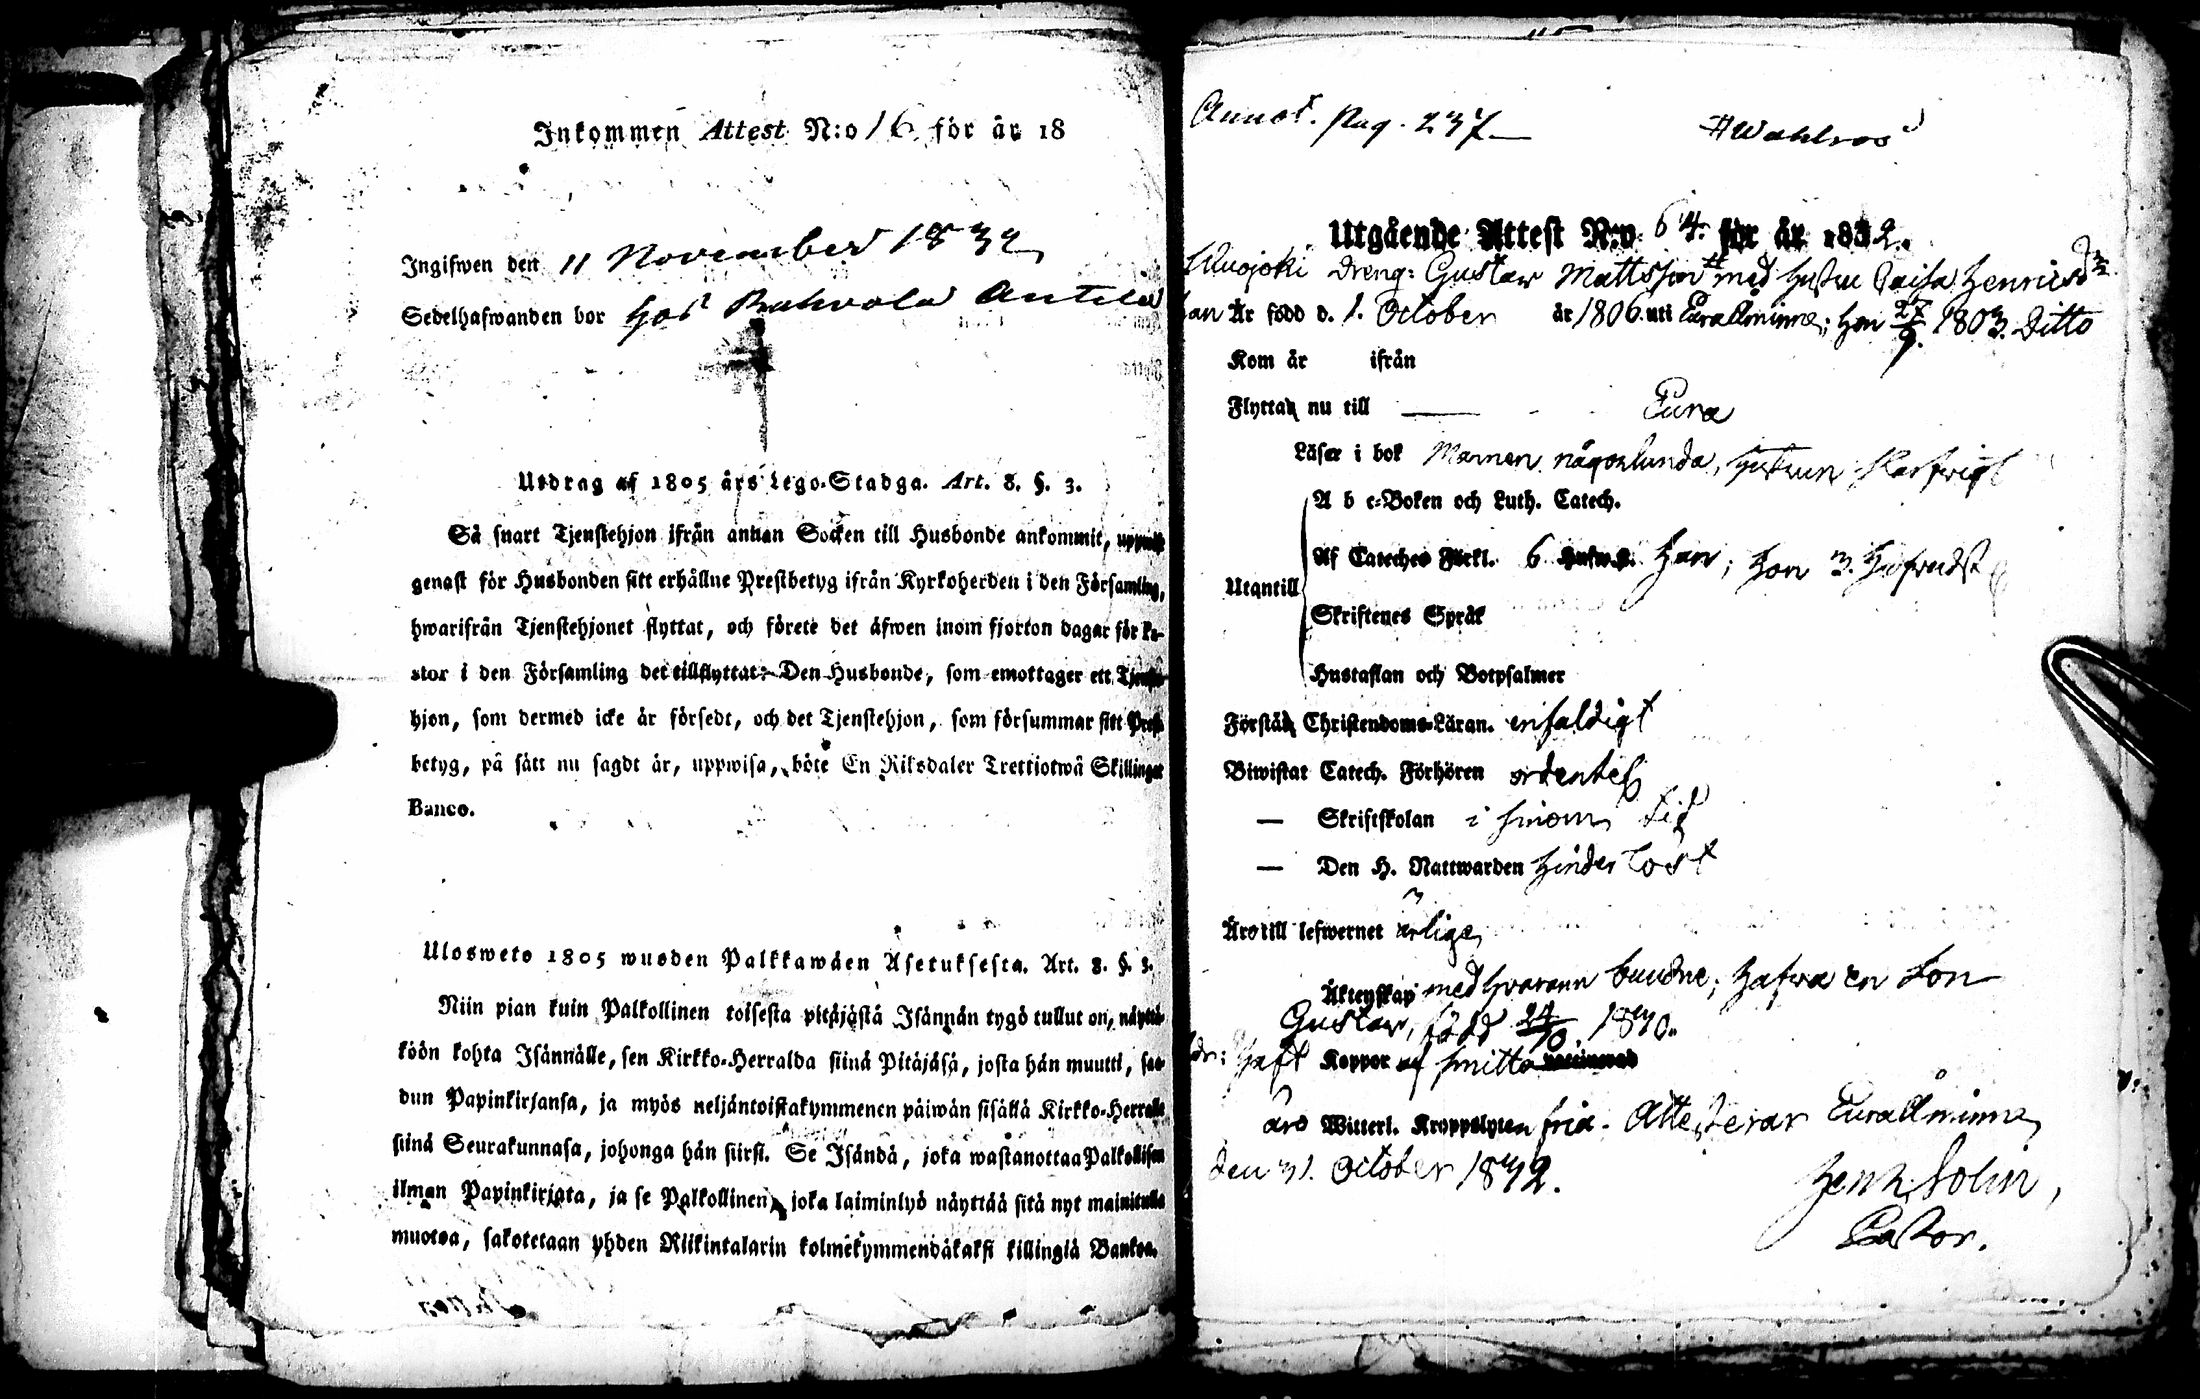 Inkommen Attest N:o 16 för år 18
Ingifwen den 11 November 1832
Sedelhafwanden bor hos Antila
Utdrag af 1805 års Lego-Stadga. Art. 8. §. 3.
Så snart Tjenstehjon ifrån annan Socken till Husbonde ankommit,
genast för Husbonden sitt erhållne Prestbetyg ifrån Kyrkoherden i den Församling,
hwarifrån Tjenstehjonet flyttat, och förete det äfwen inom fjorton dagar för Pa-
stor i den Församling det tillflyttat: Den Husbonde, som emottager ett Tjenste-
hjon, som dermed icke är försedt, och det Tjenstehjon, som försummar sitt Prest-
betyg, på sätt nu sagdt är, uppwisa, böte En Riksdaler Trettiotwå Skillingar
Banco.
Ulosweto 1805 wuoden Palkkawäen Asetuksesta. Art. 8. §. 3.
Niin pian kuin Palkollinen toisesta pitäjästä Isännän tygö tullut on, näyttä-
köön kohta Isännälle, sen Kirkko-Herralda siinä Pitäjäsä, josta hän muutti, saa-
dun Papinkirjansa, ja myös neljäntoistakymmenen päiwän sisällä Kirkko-Herralle
siinä Seurakunnasa, johonga hän siirsi. Se Isändä, joka wastanottaa Palkollisen
ilman Papinkirjata, ja se Palkollinen, joka laiminlyö näyttää sitä nyt mainitulla
muotoa, sakotetaan yhden Riikintalarin kolmekymmendäkaksi killingiä Bankoa.
Annot. pag. 237
# Wahlroos
Utgående Attest N:o 64. för år 1832.
Dreng: Gustav Mattsson # med hustru Caisa Henricsdr
han Är född d. 1. October år 1806. uti EuraÅminne; hon 27/9. 1803. Ditto
Kom år ifrån
Flyttar nu till — Eura
Läser i bok Mannen någorlunda, hustrun
A b c-Boken och Luth. Catech.
Af Cateches Förkl. 6 Hufw.s. han; hon 3. Hufwudst
Utantill
Skriftenes Språk
Hustaflan och Botpsalmer
Förstår Christendoms-Läran. enfaldigt
Biwistat Catech. Förhören ordentel.
— Skriftskolan i sinom tid
— Den H. Nattwarden hinderlöst
Äro till lefwernet ärlige,
Äktenskap med hvarann bundne; hafva en son
Gustav, född 24/10. 1830.
haft Koppor af smitto
äro Witterl. Kroppslyten fria. Attesterar EuraÅminne,
den 31. October 1832.
Henr. Solin,
Pastor.